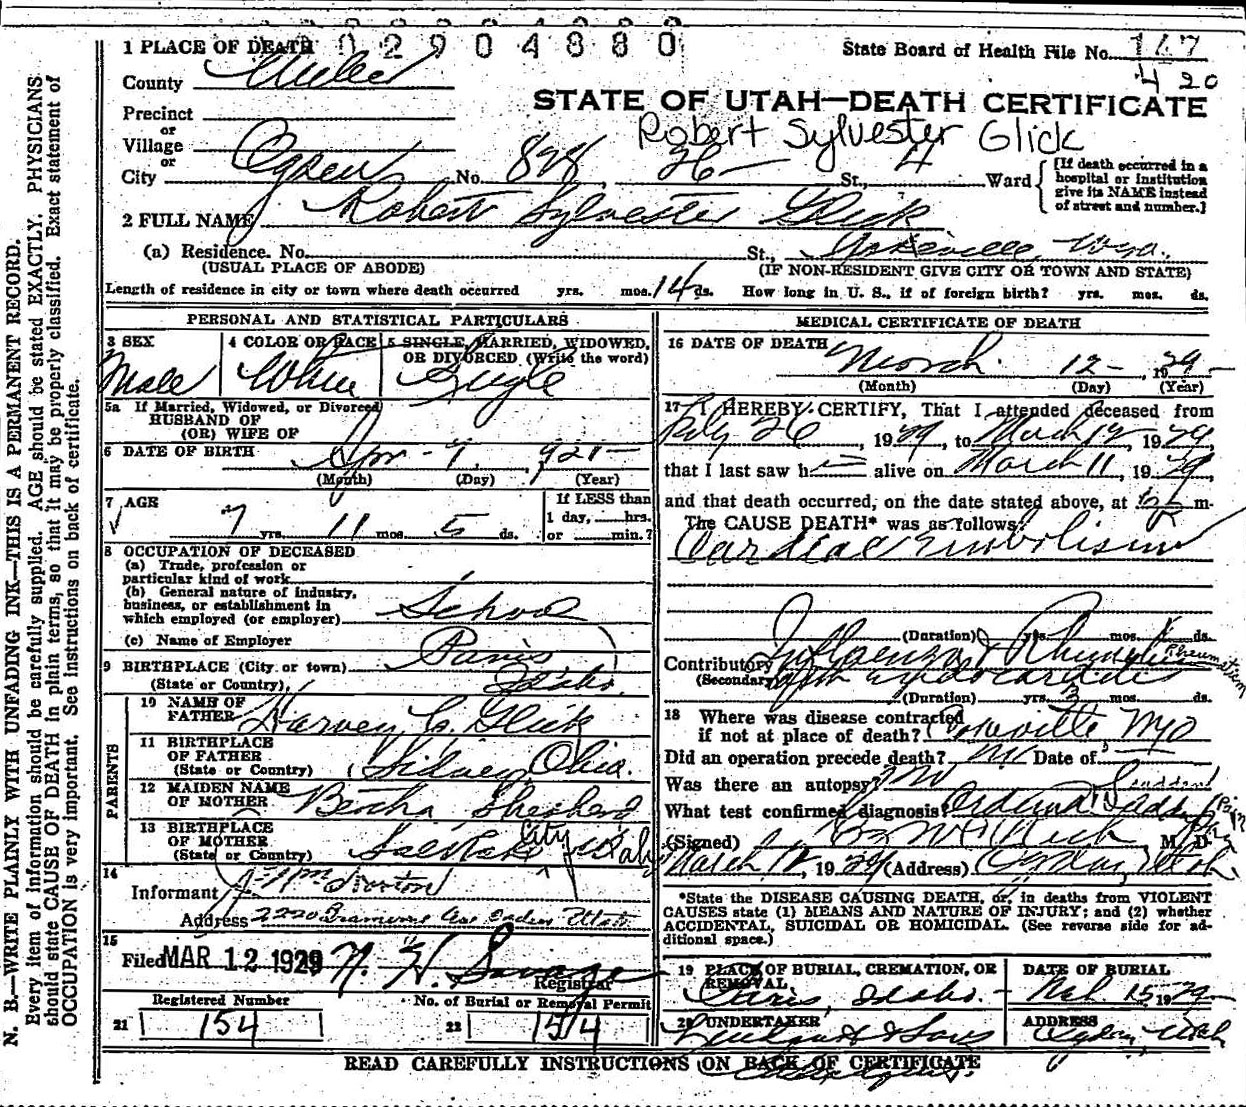 0 2 9 0 4 8 8 0
1 PLACE OF DEATH
State Board of Health File No. 167
4 20
County Weber
STATE OF UTAH—DEATH CERTIFICATE
Precinct
or
Robert Sylvester Glick
Village
or
City Ogden No. 828 26 St., 4 Ward
[If death occurred in a hospital or institution give its NAME instead of street and number.]
2 FULL NAME Robert Sylvester Glick
(a) Residence. No. St., Cokeville, Wyo.
(USUAL PLACE OF ABODE) (IF NON-RESIDENT GIVE CITY OR TOWN AND STATE)
Length of residence in city or town where death occurred yrs. mos. 14 ds. How long in U. S., if of foreign birth? yrs. mos. ds.
PERSONAL AND STATISTICAL PARTICULARS
3 SEX Male
4 COLOR OR RACE White
5 SINGLE, MARRIED, WIDOWED, OR DIVORCED (Write the word) Single
5a If Married, Widowed, or Divorced
HUSBAND OF
(OR) WIFE OF
6 DATE OF BIRTH Apr - 7, 1921
(Month) (Day) (Year)
7 AGE 7 yrs. 11 mos. 5 ds.
If LESS than
1 day, hrs.
or min.?
8 OCCUPATION OF DECEASED
(a) Trade, profession or
particular kind of work
(b) General nature of industry,
business, or establishment in
which employed (or employer) School
(c) Name of Employer
9 BIRTHPLACE (City or town) Paris
(State or Country), Idaho.
PARENTS
10 NAME OF FATHER Harvey C. Glick
11 BIRTHPLACE OF FATHER
(State or Country) Sidney, Ohio.
12 MAIDEN NAME OF MOTHER Bertha Shepherd
13 BIRTHPLACE OF MOTHER
(State or Country) Salt Lake City Utah
14 Informant Wm Norton
Address 2220 Ave Ogden Utah
15 Filed MAR 12 1929 Savage
Registrar
Registered Number No. of Burial or Removal Permit
21 154 22 154
MEDICAL CERTIFICATE OF DEATH
16 DATE OF DEATH March 12 - , 1929
(Month) (Day) (Year)
17 I HEREBY CERTIFY, That I attended deceased from
Feby 26, 1929, to March 12, 1929,
that I last saw h alive on March 11, 1929
and that death occurred, on the date stated above, at m.
The CAUSE DEATH* was as follows:
Cardiac Embolism
(Duration) yrs. mos. ds.
Contributory Influenza & Rheumatism
(Secondary) with Endocarditis
(Duration) yrs. 3 mos. ds.
18 Where was disease contracted
if not at place of death? Cokeville Wyo
Did an operation precede death? No Date of
Was there an autopsy? No
What test confirmed diagnosis? Sudden
(Signed) M. D.
March 12, 1929 (Address) Ogden, Utah
*State the DISEASE CAUSING DEATH, or, in deaths from VIOLENT
CAUSES state (1) MEANS AND NATURE OF INJURY; and (2) whether
ACCIDENTAL, SUICIDAL OR HOMICIDAL. (See reverse side for ad-
ditional space.)
19 PLACE OF BURIAL, CREMATION, OR REMOVAL DATE OF BURIAL
Paris, Idaho. - Mch 15 1929
20 UNDERTAKER ADDRESS
& Sons Ogden, Utah
READ CAREFULLY INSTRUCTIONS ON BACK OF CERTIFICATE
N. B.—WRITE PLAINLY WITH UNFADING INK—THIS IS A PERMANENT RECORD.
Every item of information should be carefully supplied. AGE should be stated EXACTLY. PHYSICIANS
should state CAUSE OF DEATH in plain terms, so that it may be properly classified. Exact statement of
OCCUPATION is very important. See instructions on back of certificate.